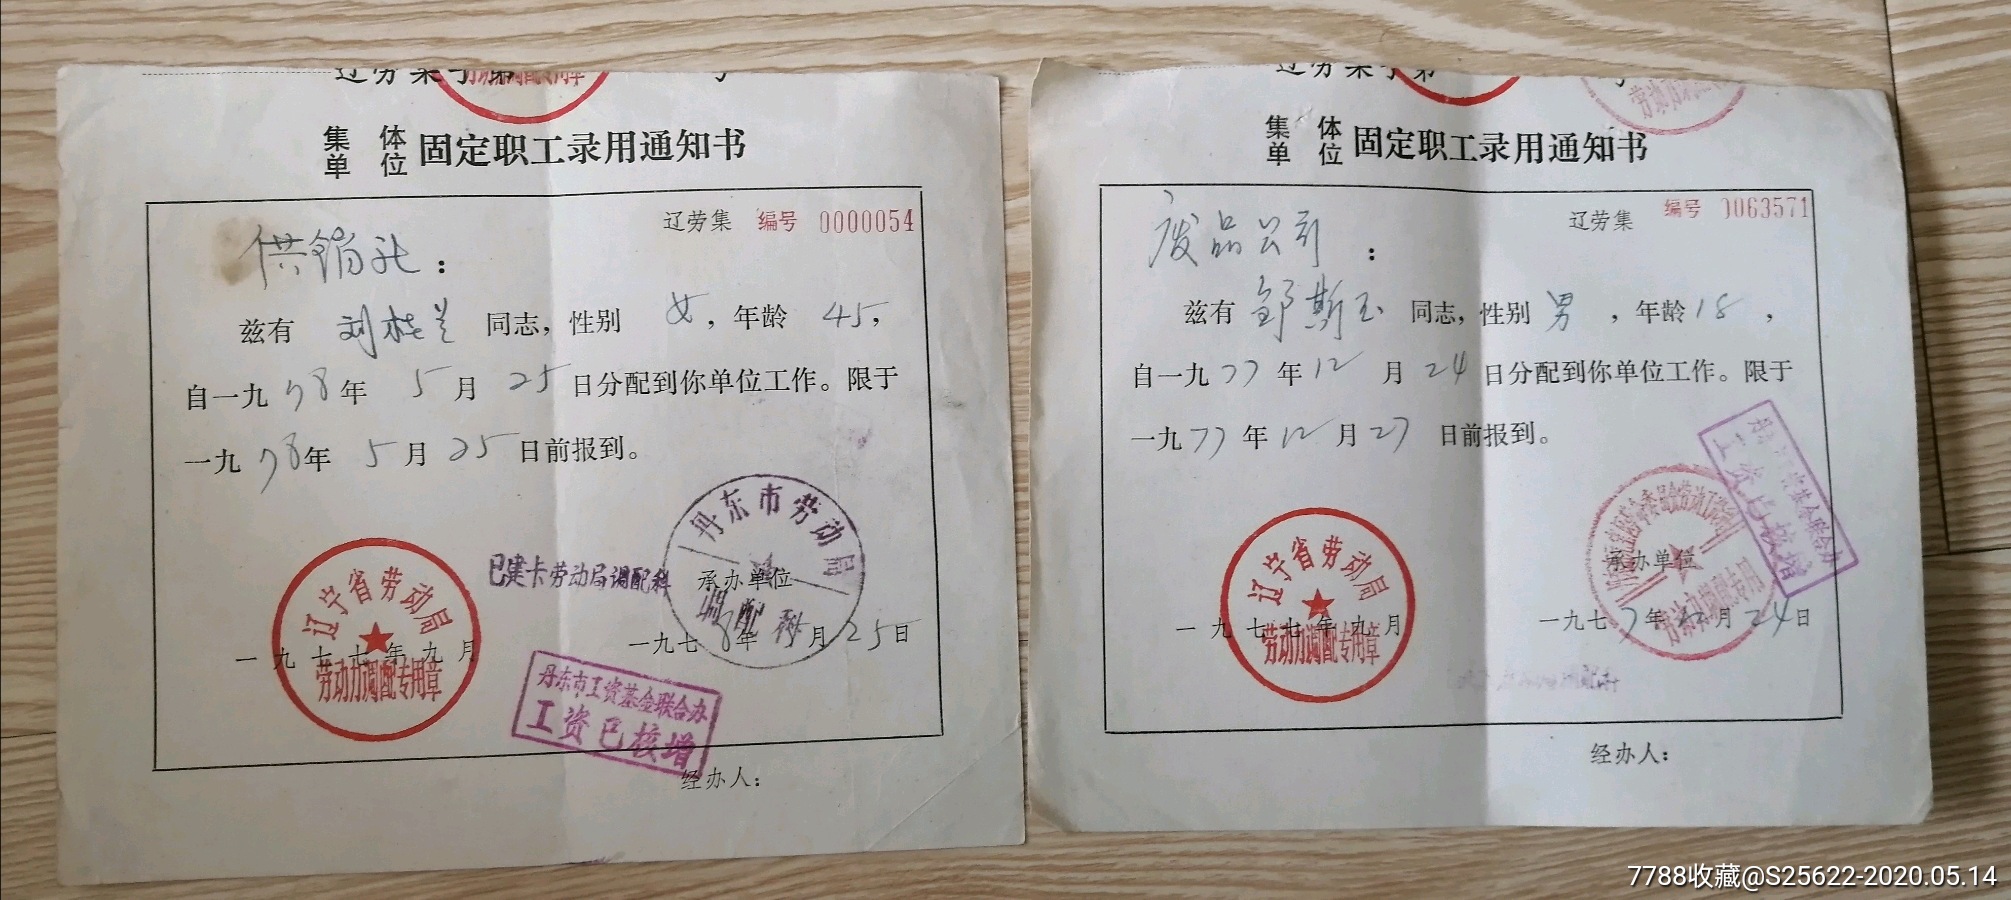 辽劳集字第 号
集体单位 固定职工录用通知书
辽劳集 编号 0000054
供销社：
兹有 刘桂兰 同志，性别 女，年龄 45，
自一九78年 5月 25日分配到你单位工作。限于
一九78年 5月 25日前报到。
丹东市劳动局
调配科
已建卡劳动局调配科
承办单位
一九七8年 月25日
辽宁省劳动局
劳动力调配专用章
一九七七年九月
丹东市工资基金联合办
工资已核增
经办人：
辽劳集字第 号
集体单位 固定职工录用通知书
辽劳集 编号 0063571
废品公司：
兹有 邹斯玉 同志，性别 男，年龄18，
自一九77年12月24日分配到你单位工作。限于
一九77年12月27日前报到。
基金联合办
工资已核增
承办单位
一九七7年12月24日
辽宁省劳动局
劳动力调配专用章
一九七七年九月
经办人：
7788收藏@S25622-2020.05.14